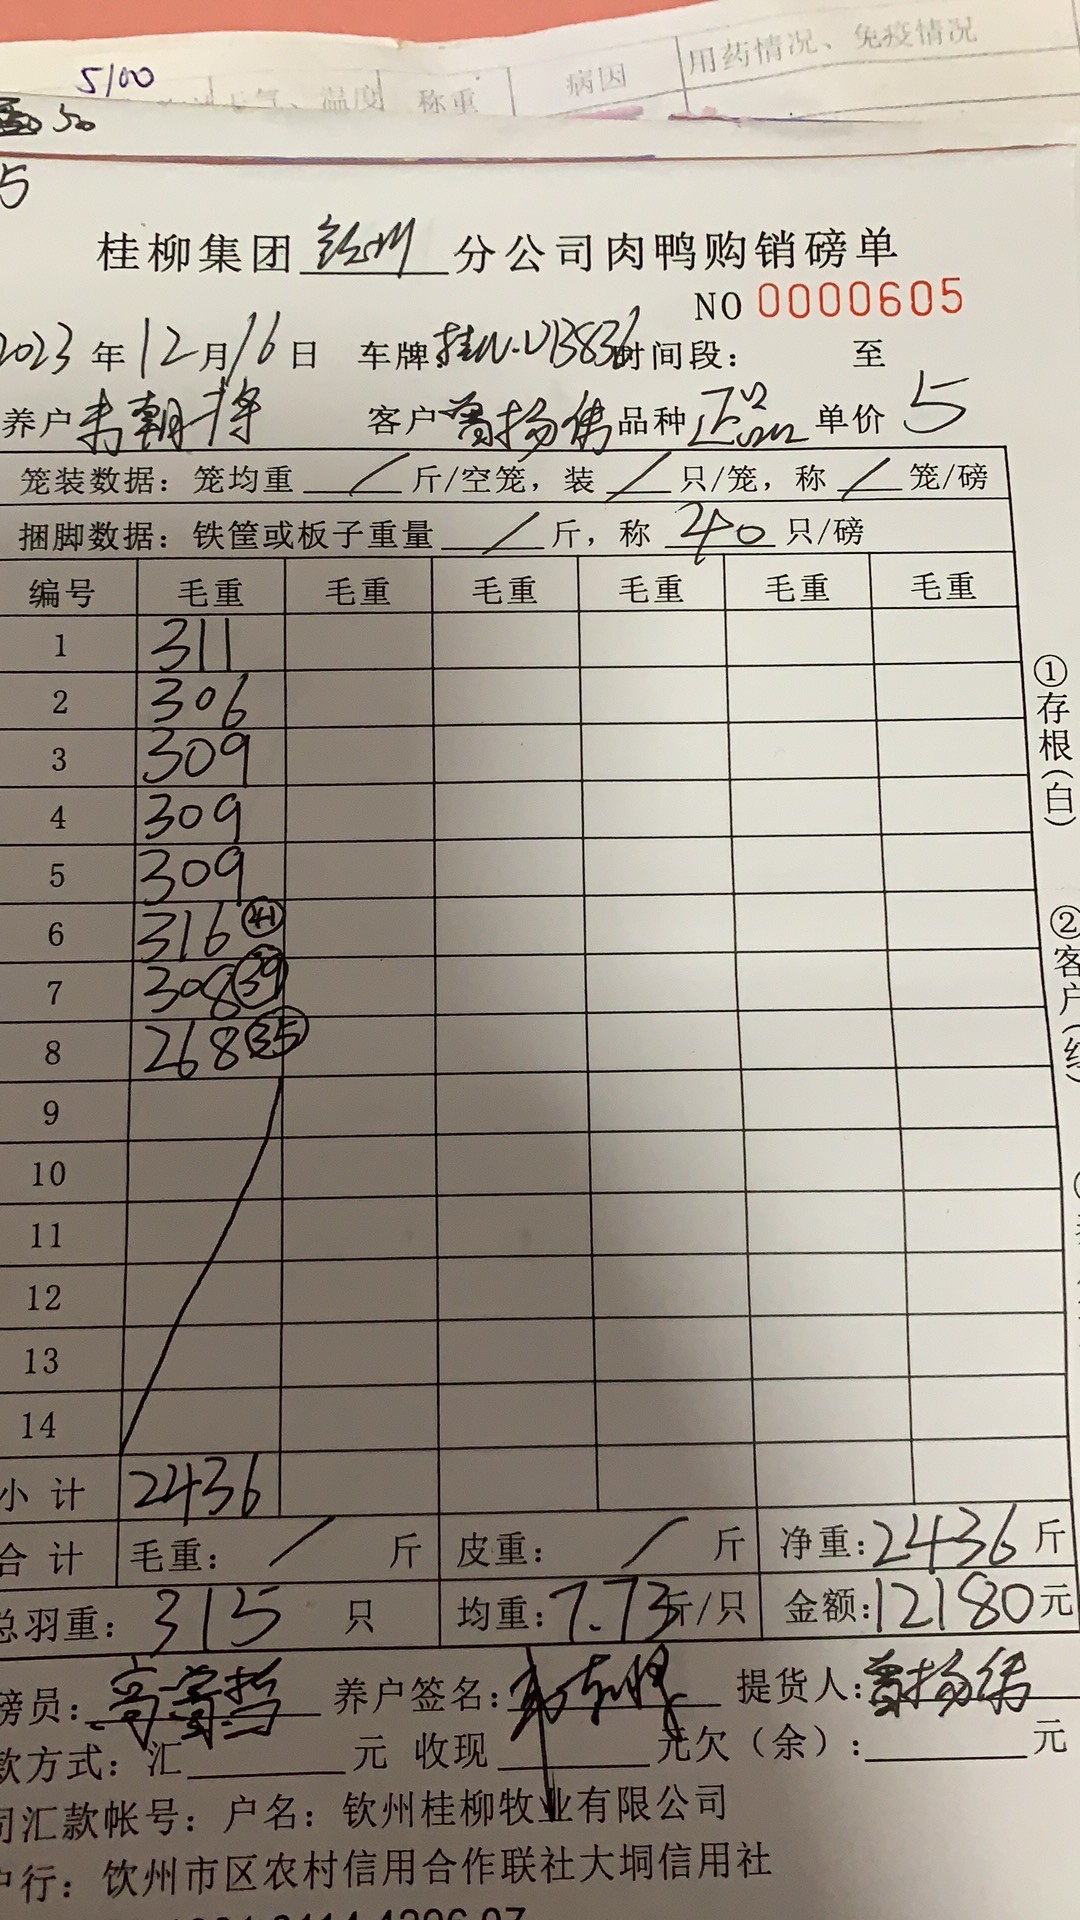 5100
天气、温度 称重 病因 用药情况、免疫情况
50
5
桂柳集团钦州分公司肉鸭购销磅单
NO 0000605
2023年12月16日 车牌:桂N·U13836时间段: 至
养户韦朝将 客户曾扬伟品种正品单价5
笼装数据:笼均重/斤/空笼,装/只/笼,称/笼/磅
捆脚数据:铁筐或板子重量/斤,称40只/磅
编号 毛重 毛重 毛重 毛重 毛重 毛重
1 311
2 306
3 309
4 309
5 309
6 316 41
7 308 39
8 268 35
9
10
11
12
13
14
小计 2436
合计 毛重:/斤 皮重:/斤 净重:2436斤
总羽重:315只 均重:7.73斤/只 金额:12180元
磅员: 养户签名: 提货人:曾扬伟
款方式:汇 元 收现 元欠(余): 元
司汇款帐号:户名:钦州桂柳牧业有限公司
户行:钦州市区农村信用合作联社大垌信用社
①存根(白)
②客户(红)